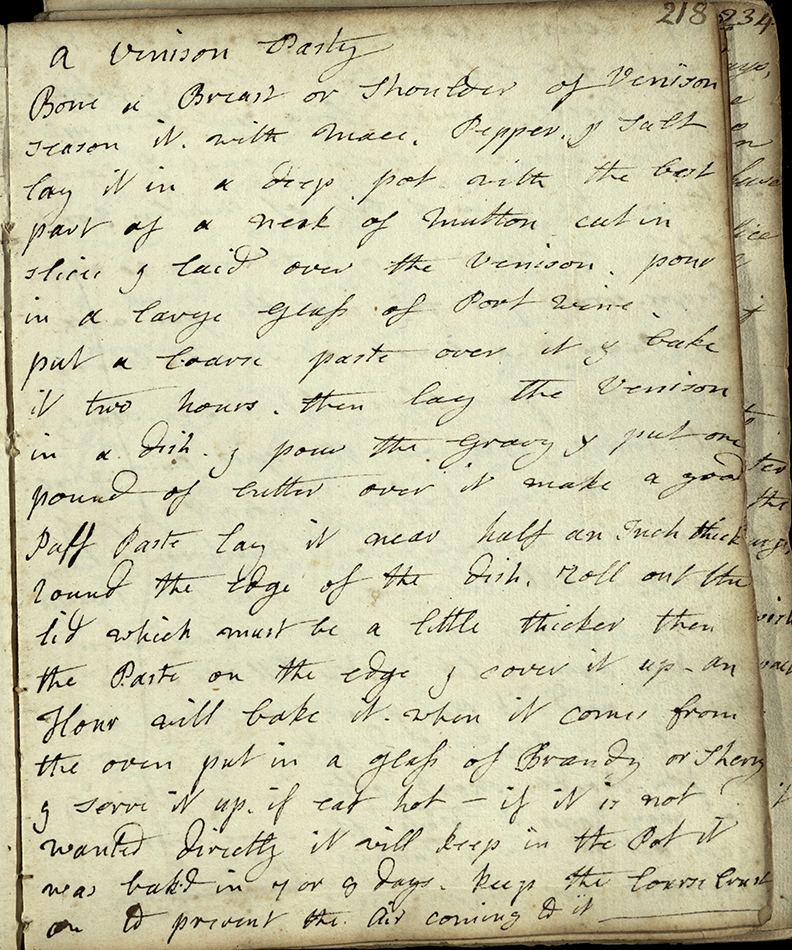 218 234
a Venison Pasty
Bone a Breast or Shoulder of Venison
season it with Mace. Pepper. & Salt
lay it in a deep pot with the best
part of a neck of Mutton cut in
slices & laid over the Venison. pour
in a large Glass of Port Wine
put a Coarse paste over it & bake
it two hours. then lay the Venison
in a dish. & pour the Gravy & put one
pound of butter over it make a good
Puff Paste lay it near half an Inch thick
round the edge of the dish. roll out the
lid which must be a little thicker then
the Paste on the edge & cover it up - an
Hour will bake it. when it comes from
the oven put in a glass of Brandy or Sherry
& serve it up. if eat hot - if it is not
wanted directly it will keep in the Pot it
was bak'd in 7 or 8 days. keep the Coarse Crust
on to prevent the Air coming to it